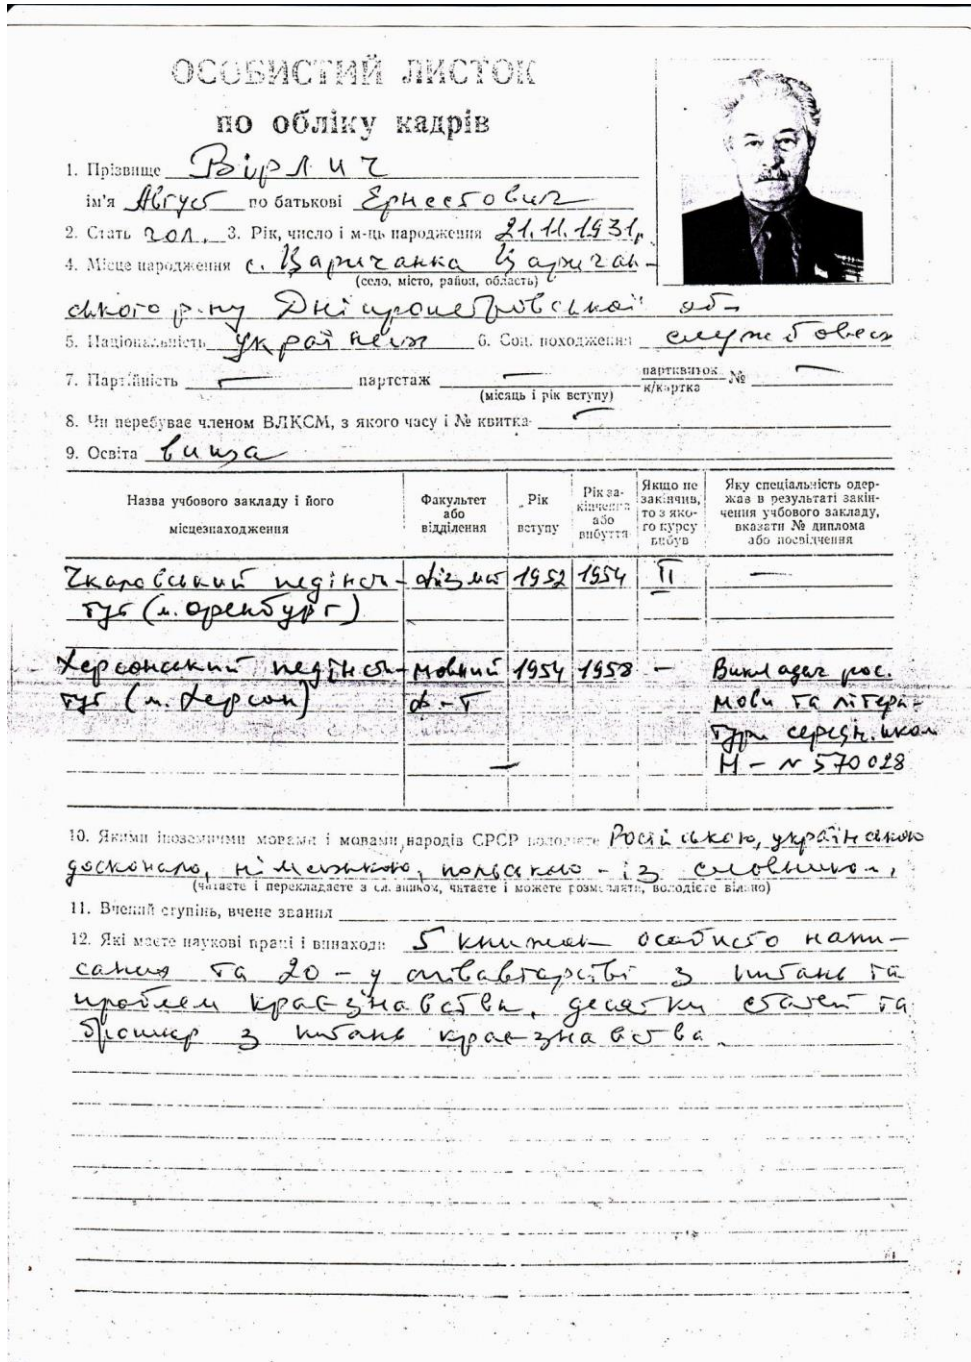 ОСОБИСТИЙ ЛИСТОК
по обліку кадрів
1. Прізвище Вірлич
ім'я Август по батькові Ернестович
2. Стать чол. 3. Рік, число і м-ць народження 21.11.1931р.
4. Місце народження с. Царичанка Царичан-
(село, місто, район, область)
ського р-ну Дніпропетровської обл
5. Національність українець 6. Соц. походження службовець
7. Партійність — партстаж — партквиток к/картка № —
(місяць і рік вступу)
8. Чи перебуває членом ВЛКСМ, з якого часу і № квитка —
9. Освіта вища
Назва учбового закладу і його місцезнаходження
Факультет або відділення
Рік вступу
Рік закінчення або вибуття
Якщо не закінчив, то з якого курсу вибув
Яку спеціальність одержав в результаті закінчення учбового закладу, вказати № диплома або посвідчення
Чкаловський педінсти- фізмат 1952 1954 II —
тут (м. Оренбург)
Херсонський педінсти- мовний 1954 1958 - Викладач рос.
тут (м. Херсон) ф-т мови та літера-
тури середн. школи
Н - № 570028
10. Якими іноземними мовами і мовами народів СРСР володієте Російською, українською
досконало, німецькою, польською - із словником,
(читаєте і перекладаєте з словником, читаєте і можете розмовляти, володієте вільно)
11. Вчений ступінь, вчене звання
12. Які маєте наукові праці і винаходи 5 книжок особисто напи-
сання та 20 - у співавторстві з питань та
проблем краєзнавства, десятки статей та
брошур з питань краєзнавства.